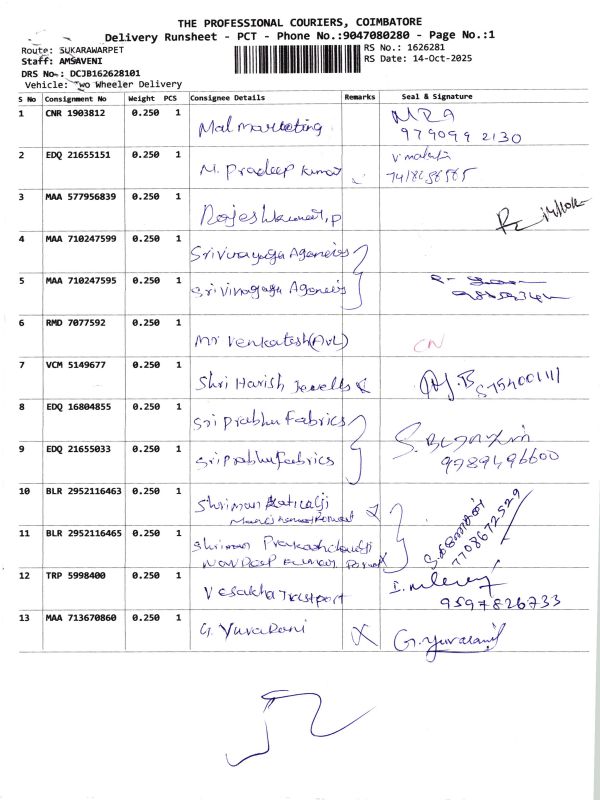 THE PROFESSIONAL COURIERS, COIMBATORE
Delivery Runsheet - PCT - Phone No.:9047080280 - Page No.:1
Route: SUKARAWARPET
RS No.: 1626281
Staff: AMSAVENI
RS Date: 14-Oct-2025
DRS No.: DCJB162628101
Vehicle: Two Wheeler Delivery
S No Consignment No Weight PCS Consignee Details Remarks Seal & Signature
1 CNR 1903812 0.250 1 Mal marketing MRA
979099 2130
2 EDQ 21655151 0.250 1 M. Pradeep Kumar
3 MAA 577956839 0.250 1 Rajesh kumar, p
4 MAA 710247599 0.250 1 Sri Vinayaga Agencies
5 MAA 710247595 0.250 1 Sri Vinayaga Agencies
6 RMD 7077592 0.250 1 Mr Venkatesh(AVL) CN
7 VCM 5149677 0.250 1 Shri Harish Jewells
8 EDQ 16804855 0.250 1 Sri Prabhu Fabrics
9 EDQ 21655033 0.250 1 Sri Prabhu fabrics
9789496600
10 BLR 2952116463 0.250 1 Shriman
7708672529
11 BLR 2952116465 0.250 1 Shriman
Navdeep Kumar
12 TRP 5998400 0.250 1 Vesakha Trasport
9597826733
13 MAA 713670860 0.250 1 G. Yuvarani X G. Yuvarani